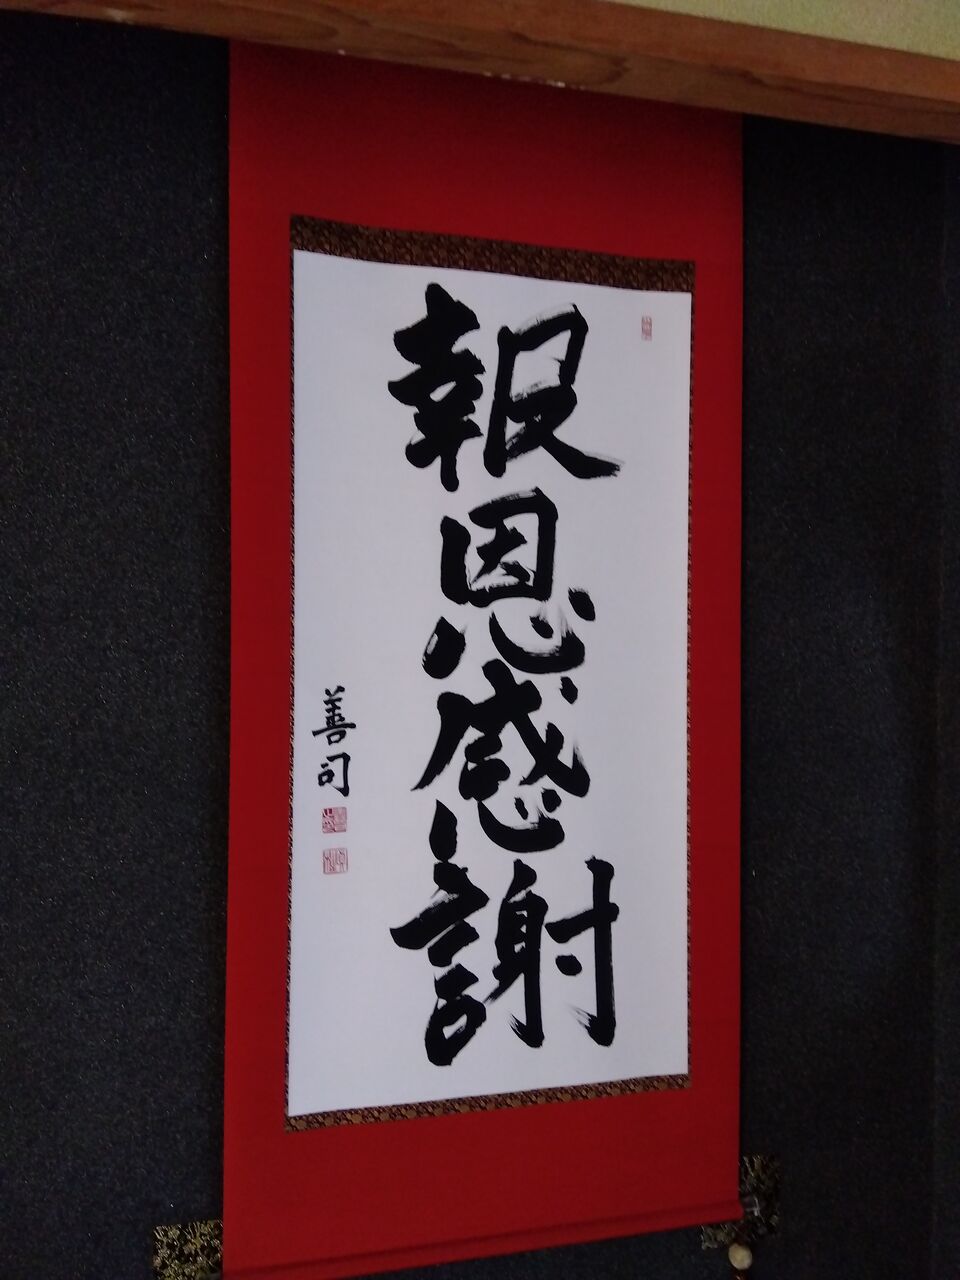 報恩感謝
善司